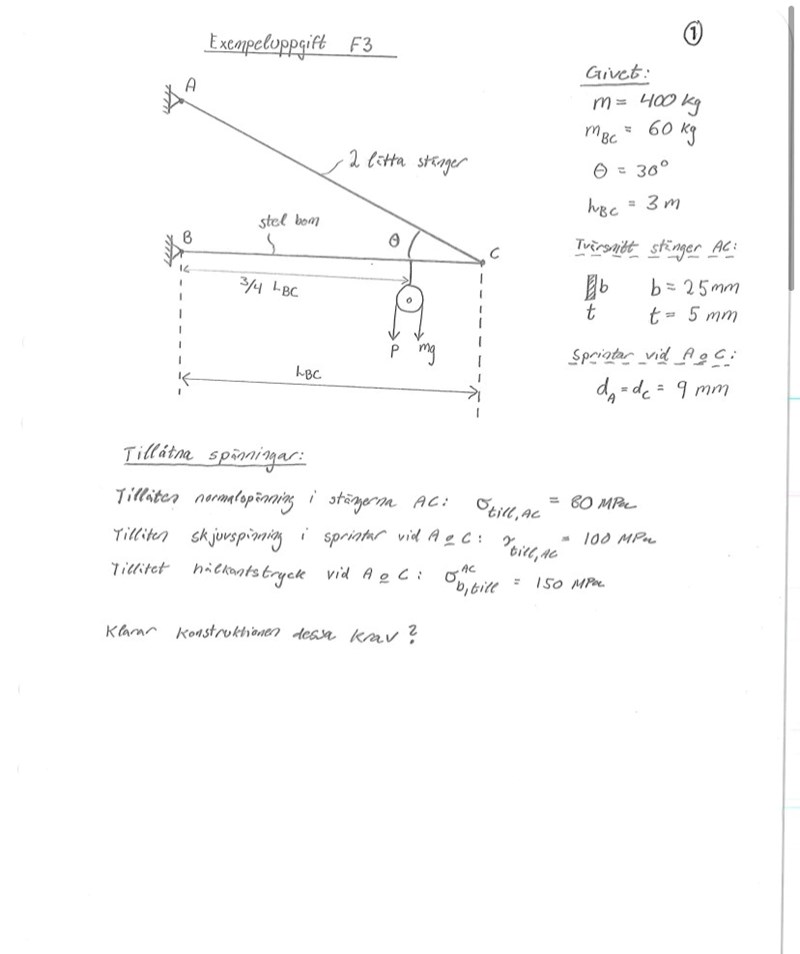 Exempeluppgift F3
①
Givet:
m = 400 kg
m_BC = 60 kg
θ = 30°
L_BC = 3 m
Tvärsnitt stänger AC:
b b = 25 mm
t t = 5 mm
Sprintar vid A o C:
d_A = d_C = 9 mm
A
2 lätta stänger
stel bom
B
θ
C
3/4 L_BC
P mg
L_BC
Tillåtna spänningar:
Tillåten normalspänning i stängerna AC: σ_till,AC = 80 MPa
Tillåten skjuvspänning i sprintar vid A o C: τ_till,AC = 100 MPa
Tillåtet hålkantstryck vid A o C: σ_b,till^AC = 150 MPa
Klarar konstruktionen dessa krav?